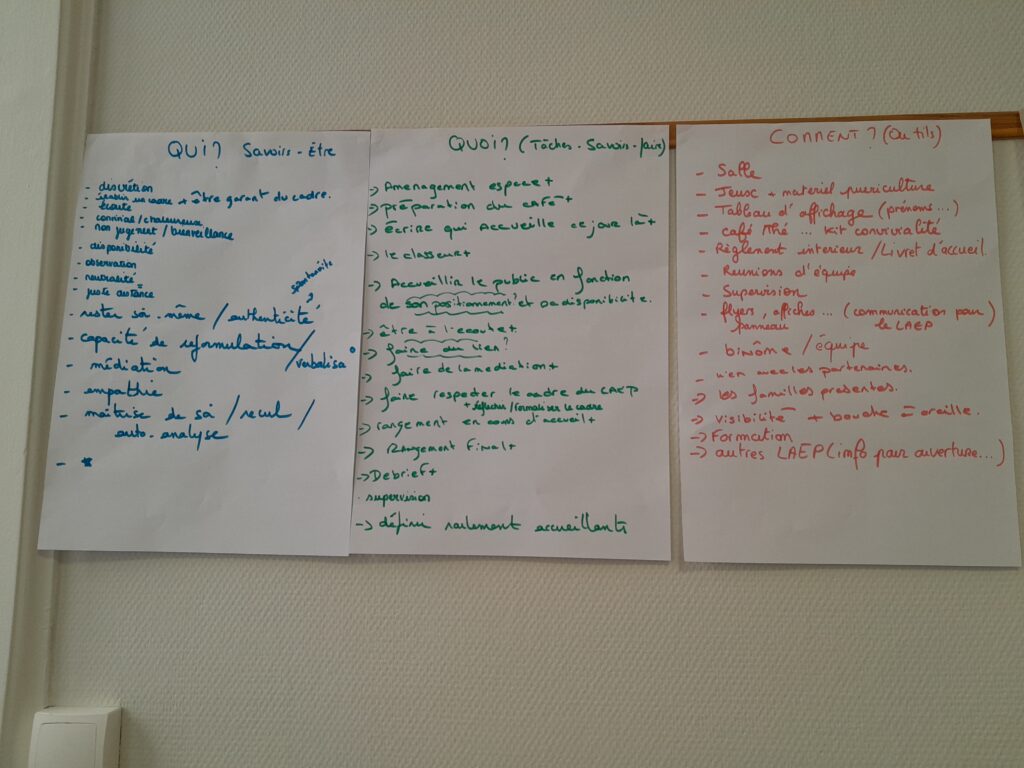 QUI ? Savoirs - Être
- discrétion
- établir un cadre + être garant du cadre.
- écoute
- convivial / chaleureux
- non jugement / bienveillance
- disponibilité
- observation
- neutralité
- juste distance
spontanéité
- rester soi-même / authenticité
- capacité de reformulation / verbalisa°
- médiation
- empathie
- maîtrise de soi / recul /
auto-analyse
-
QUOI ? (Tâches - Savoirs - faire)
-> Amenagement espace +
-> préparation du café +
-> Écrire qui accueille ce jour là +
-> le classeur +
-> Accueillir le public en fonction
de son positionnement ? et sa disponibilité.
-> être à l'écoute +
-> faire du lien ?
-> faire de la mediation +
-> faire respecter le cadre du LAEP
+ réfléchir / formaliser le cadre
-> rangement en cours d'accueil +
-> Rangement final +
-> Debrief +
. supervision
-> définir roulement accueillants
COMMENT ? (Outils)
- Salle
- Jeux + matériel puericulture
- Tableau d'affichage (prénoms ...)
- café thé ... kit convivialité
- Règlement interieur / Livret d'accueil.
- Reunions d'équipe
- Supervision
- flyers, affiches ... (communication pour)
panneau le LAEP
- binôme / équipe
- lien avec les partenaires.
-> les familles presentes.
-> visibilité + bouche à oreille.
-> Formation
-> autres LAEP (info pour ouverture...)